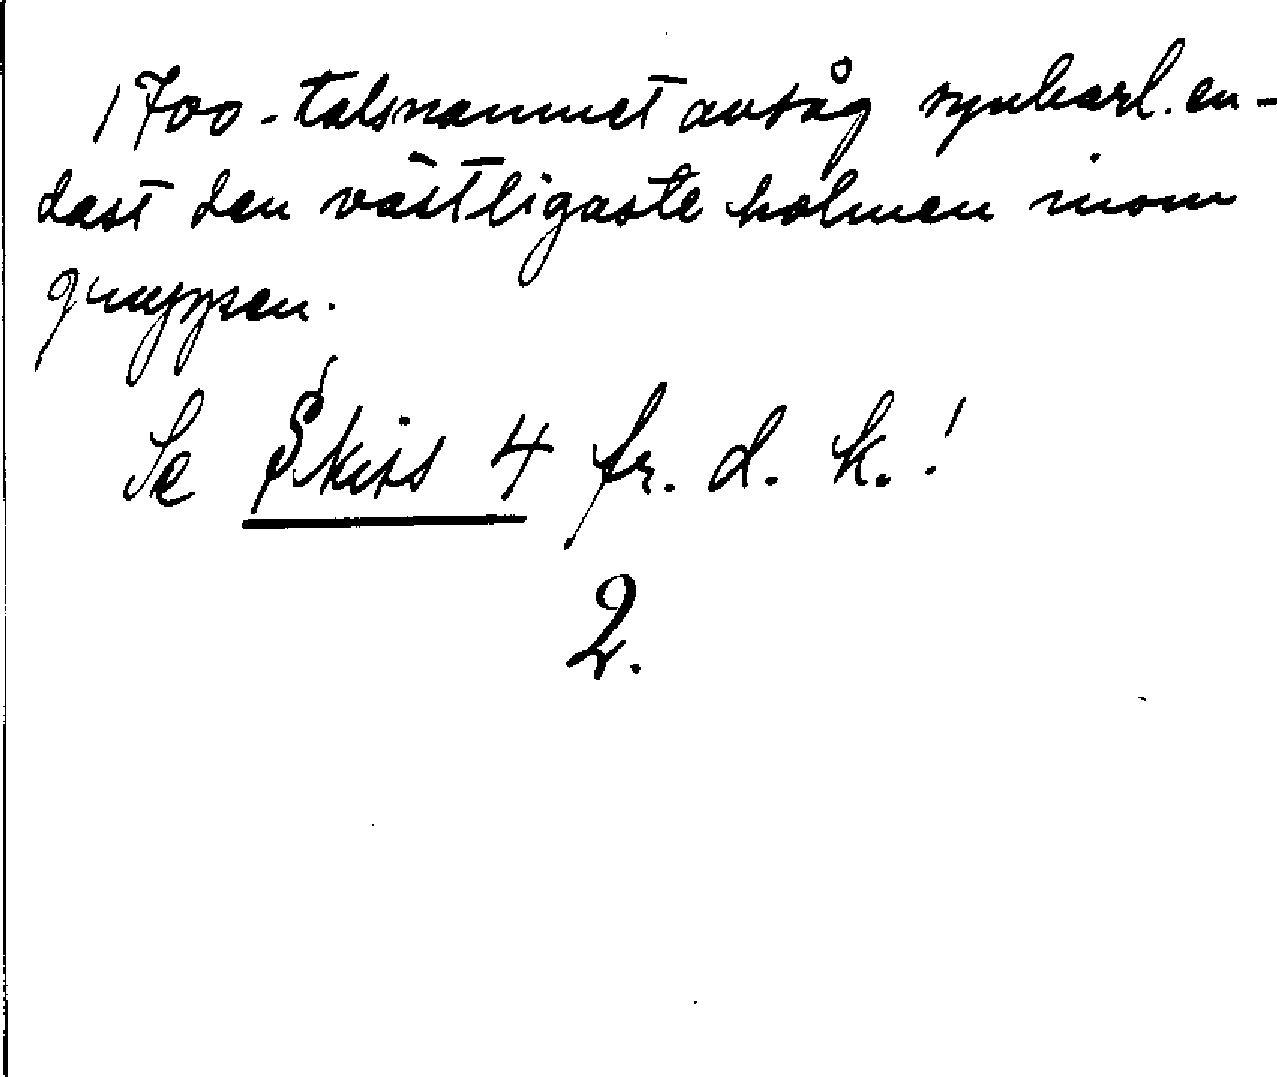 1700-talsnamnet avsåg synbarl. en-
dast den västligaste holmen inom
gruppen.
Se Skiss 4 fr. d. k.!
2.